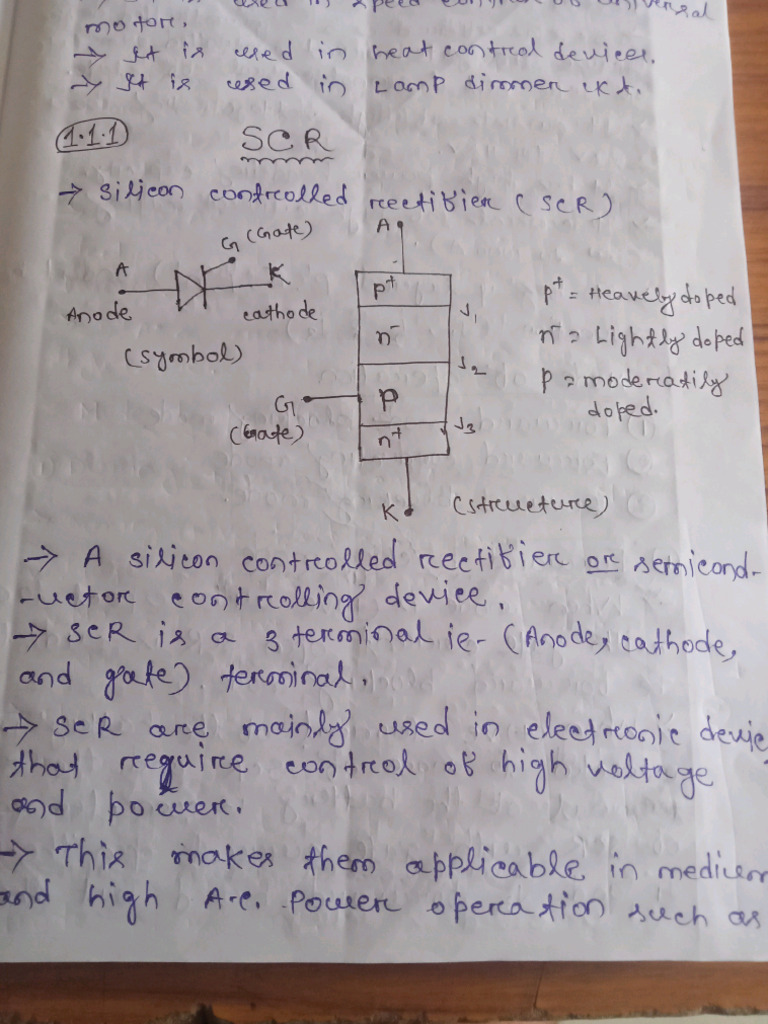 used in speed control of universal
motor.
→ It is used in heat control devices.
→ It is used in Lamp dimmer ckt.
1.1.1 SCR
→ Silicon controlled rectifier (SCR)
G (Gate)
A K
Anode cathode
(symbol)
A
p+
J1
n-
J2
G p
(Gate)
J3
n+
K (structure)
p+ = Heavely doped
n- = Lightly doped
p = moderatily
doped.
→ A silicon controlled rectifier or semicond-
-uctor controlling device.
→ SCR is a 3 terminal ie- (Anode, cathode,
and gate) terminal.
→ SCR are mainly used in electronic device
that require control of high voltage
and power.
→ This makes them applicable in medium
and high A.c. Power operation such as